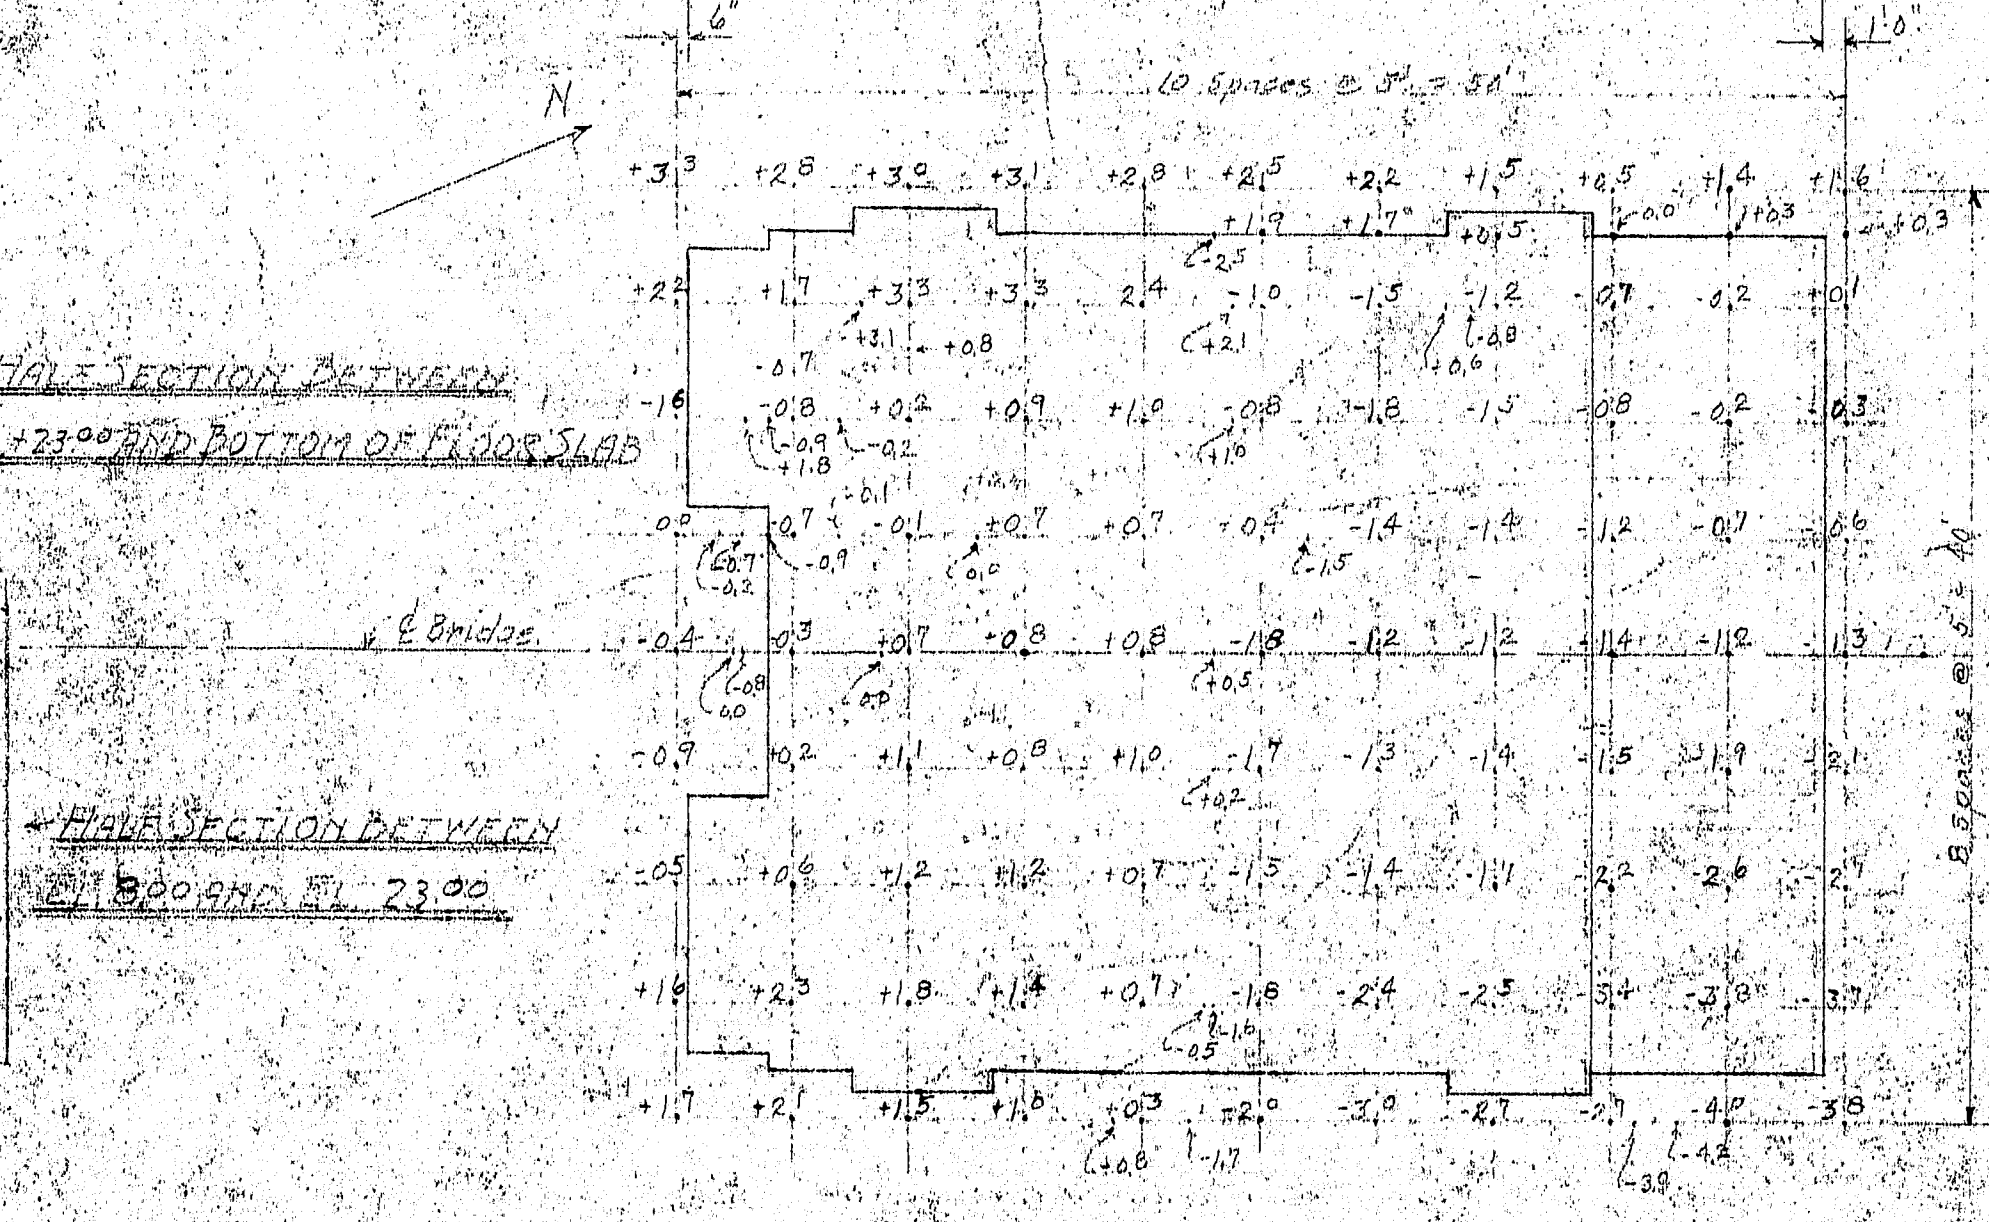 6" 1'0"
10 Spaces @ 5' = 50'
N
+3.3 +2.8 +3.0 +3.1 +2.8 +2.5 +2.2 +1.5 +0.5 +1.4 +1.6
+1.9 +1.7 +0.5 0.0 +0.3 +0.3
-2.5
+2.2 +1.7 +3.3 +3.3 2.4 -1.0 -1.5 -1.2 -0.7 -0.2 +0.1
+3.1 +0.8 +2.1 -0.8
-0.7 +0.6
HALF SECTION BETWEEN
-1.6 -0.8 +0.2 +0.9 +1.0 -0.8 -1.8 -1.5 -0.8 -0.2 0.3
+23.00 AND BOTTOM OF FLOOR SLAB
-0.9 -0.2 +1.0
+1.8
-0.1
0.0 -0.7 -0.1 +0.7 +0.7 +0.4 -1.4 -1.4 -1.2 -0.7 0.6
-0.7 -0.9 0.0 -1.5
-0.3
℄ Bridge
-0.4 -0.3 +0.7 +0.8 +0.8 -1.8 -1.2 -1.2 -1.4 -1.2 -1.3
-0.8 0.0 +0.5
0.0
-0.9 +0.2 +1.1 +0.8 +1.0 -1.7 -1.3 -1.4 -1.5 -1.9 -2.1
+0.2
HALF SECTION BETWEEN
EL. 8.00 AND EL. 23.00
-0.5 +0.6 +1.2 +1.2 +0.7 -1.5 -1.4 -1.7 -2.2 -2.6 -2.7
+1.6 +2.3 +1.8 +1.4 +0.7 -1.8 -2.4 -2.5 -3.4 -3.8 -3.7
-1.6
-0.5
+1.7 +2.1 +1.5 +1.6 +0.3 -2.0 -3.0 -2.7 -2.7 -4.0 -3.8
+0.8 -1.7 -4.2
-3.9
8 Spaces @ 5' = 40'